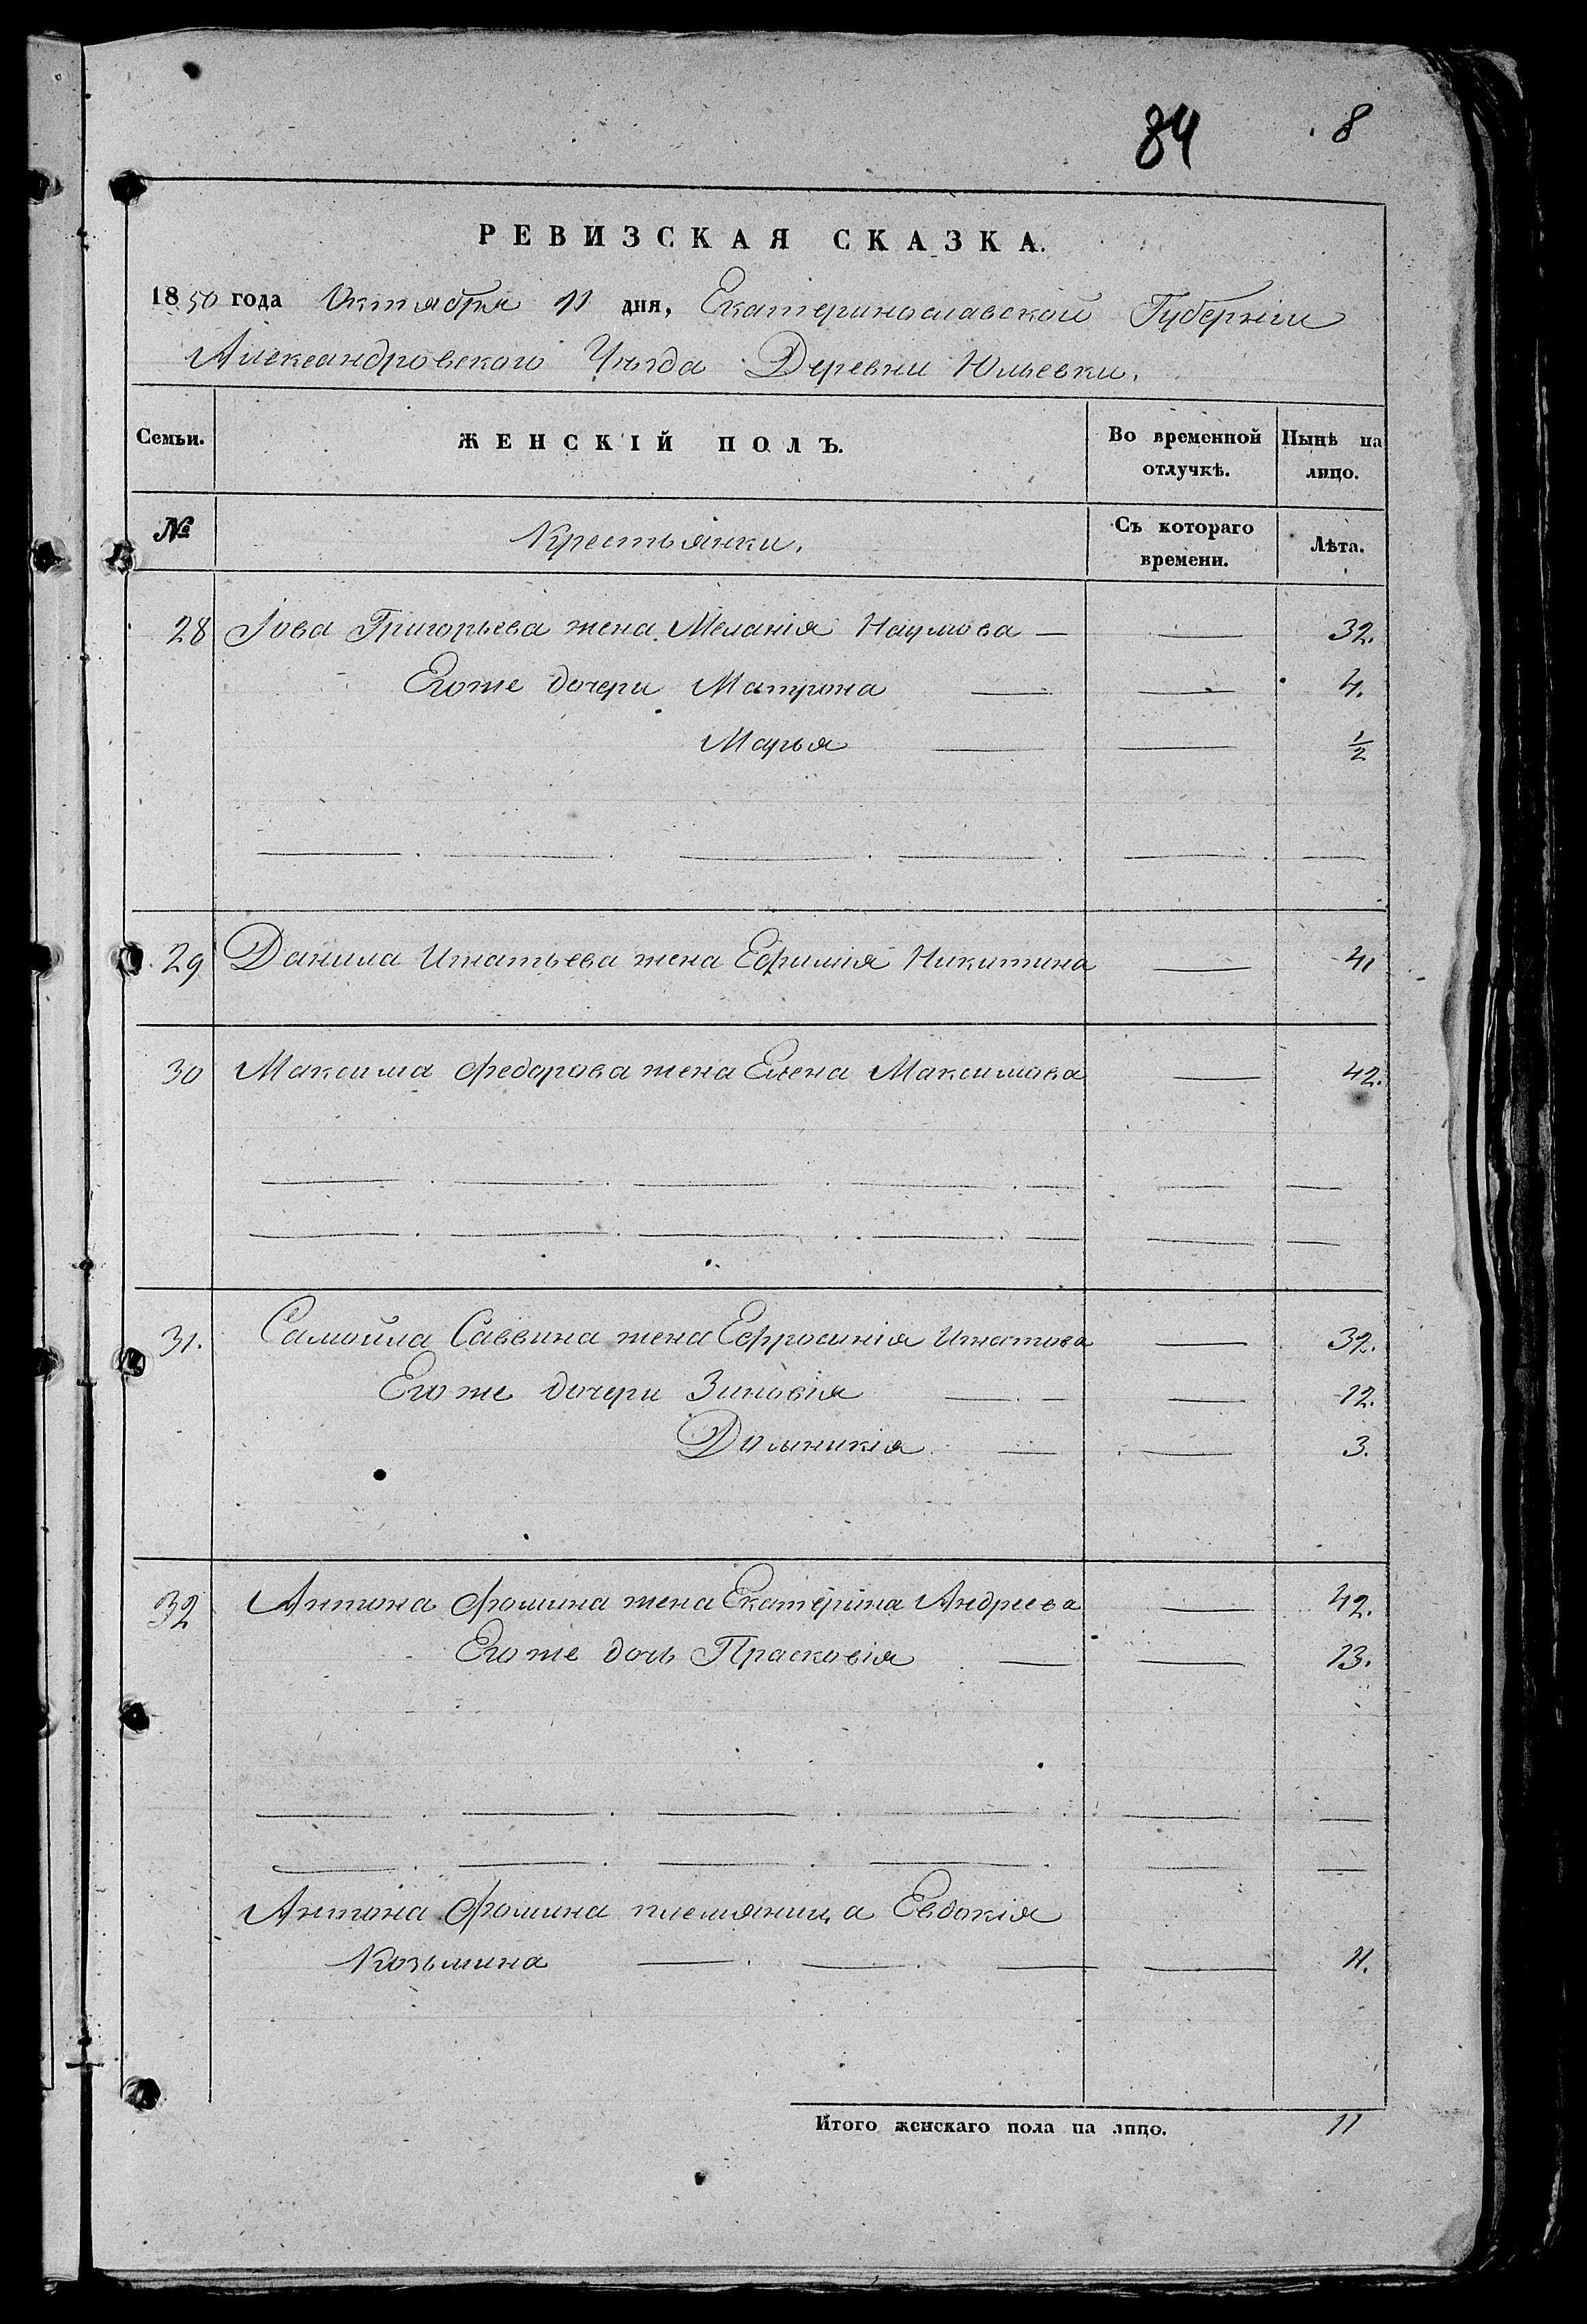 84 8
РЕВИЗСКАЯ СКАЗКА.
1850 года Октября 11 дня, Екатеринославской Губерніи
Александровскаго Уѣзда Деревни Юльевки.
Семьи. ЖЕНСКІЙ ПОЛЪ. Во временной отлучкѣ. Нынѣ на лицо.
№ Крестьянки. Съ котораго времени. Лѣта.
28 Іова Григорьева жена Меланія Наумова — — 32.
Егоже дочери Матрона — — 4.
Марья — — ½
29 Данила Игнатьева жена Ефимія Никитина — 41
30 Максима Федорова жена Елена Максимова — 42.
31. Самойла Саввина жена Ефросинія Игнатова — 32.
Егоже дочери Зиновія — — 12.
Домникія — — 3.
32 Антона Фомина жена Екатерина Андреева — 42.
Егоже дочь Прасковія — — 13.
Антона Фомина племянница Евдокія
Козьмина — — — — 11.
Итого женскаго пола на лицо. 11